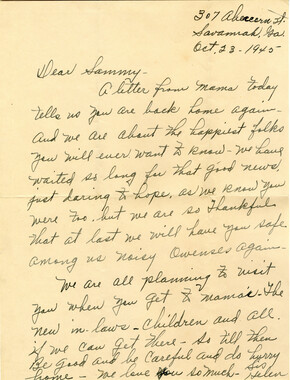 307 Abercorn St.
Savannah, Ga.
Oct. 23 - 1945
Dear Sammy -
A letter from Mama today
tells us you are back home again -
And we are about the happiest folks
you will ever want to know - We have
waited so long for that good news,
just daring to hope, as we know you
were too. but we are so thankful
that at last we will have you safe
among us noisy Owenses again -
We are all planning to visit
you when you get to mama's - The
new in-laws - children and all.
if we can get there - So till then
be good and be careful and do hurry
home - We love you so much - Sis
Helen